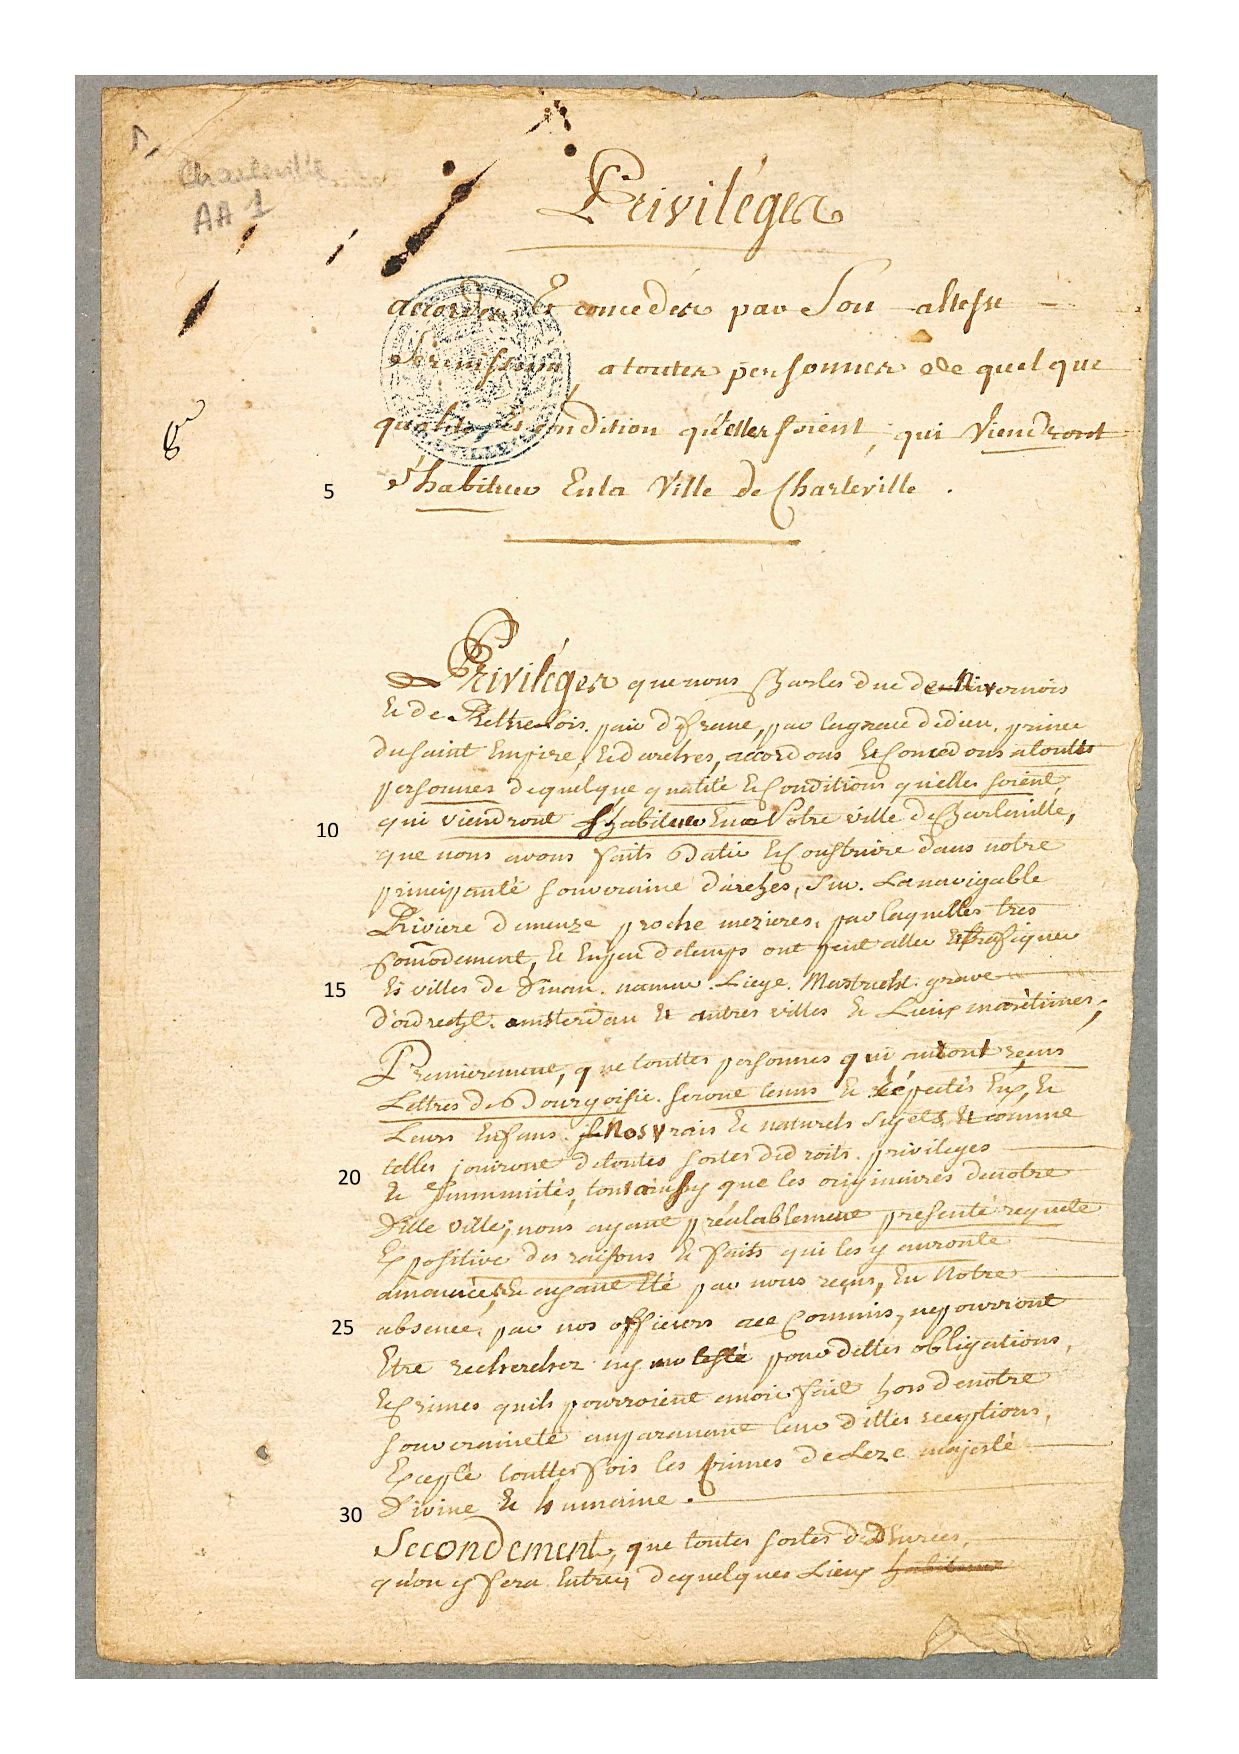 Charleville
AA 1
Privileges
accordés Et concedés par Son altesse
Serenissime, a toutes personnes de quelque
qualité Et condition qu'elles soient, qui Viendront
s'habituer En la Ville de Charleville.
5
Privileges que nous Charles duc de Nivernois
Et de Rethelois. pair de france, par la grace de dieu. prince
du saint Empire, Et darches, accordons Et Concedons a touttes
personnes de quelque qualité Et Conditions qu'elles soient,
qui viendront s'habituer En Notre ville de Charleville,
10
que nous avons faits Batir Et Construire dans notre
principauté souveraine d'arches, sur. La navigable
Riviere de meuze proche mezieres, par laquelles tres
comodement, Et En peu de temps ont peut aller Et trafiquer
Es villes de Dinan. namur. Liege. Mastricht. grave
15
d'ordrecht. amsterdam Et autres villes Et Lieux maritimes;
Premierement, que touttes personnes qui auront reçus
Lettres de Bourgoisie. seront tenus Et réputés Eux, Et
Leurs Enfans. Nos vrais Et naturels sujets, Et comme
telles jouiront de toutes sortes de droits. privileges
20
Et Immunités, tout ainsy que les originaires de notre
Ditte ville; nous ayant préalablement presenté requete
Expositive des raisons Et faits qui les y auronte
amenées, Et ayant Eté par nous reçus, En Notre
absence, par nos officiers a ce Commis, ne pourront
25
Etre recherchez ny molesté pour dettes obligations,
Et Crimes quils pourroient avoir fait hors de notre
souveraineté auparavant leur dittes receptions,
Excepté touttes fois les crimes de Leze majesté
Divine Et humaine.
30
Secondement, que toutes sortes de Denrées,
qu'on y fera Entrer, de quelques Lieux